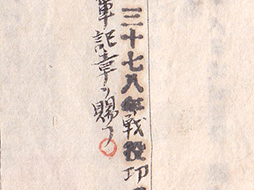 三十七八年戦役功
軍記章ヲ賜フ